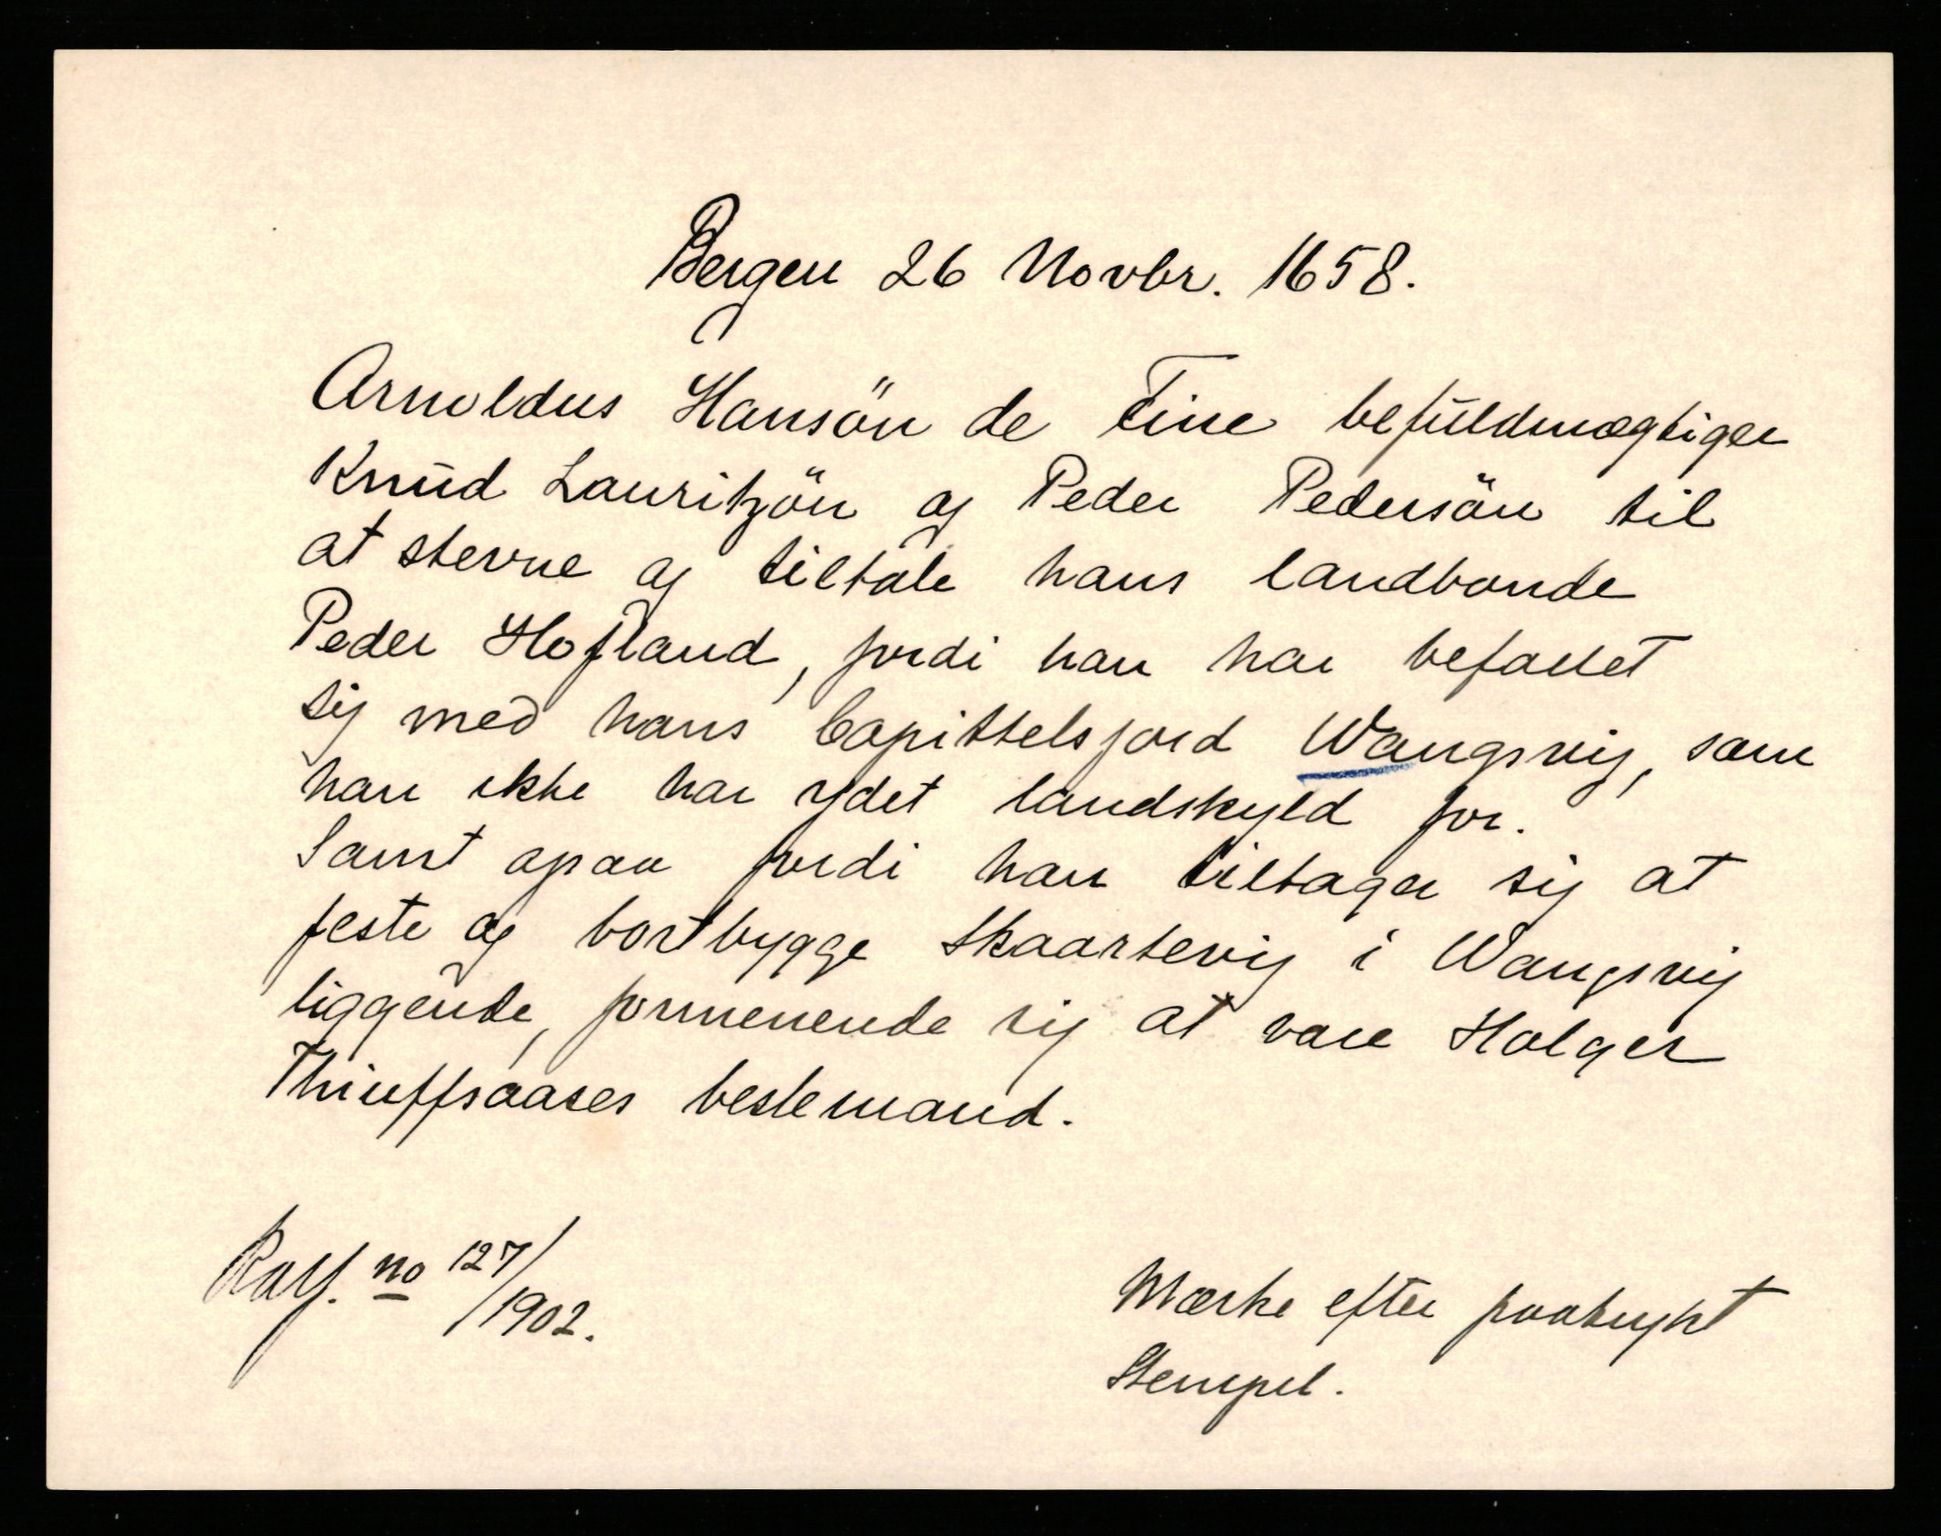 Bergen 26 Novbr. 1658.
Arnoldus Hansön de Fine befuldmægtiger
Knud Lauritzön og Peder Pedersön til
at stevne og tiltale hans landbonde
Peder Hofland, fordi han har befattet
sig med hans Capittelsjord Wangsvig, som
han ikke har ydet landskyld for.
Samt ogsaa fordi han tiltager sig at
feste og bortbygge Skaartevig i Wangsvig
liggende, formenende sig at være Holger
Thiuffsaases bestemand.
no 127/1902.
Mærke efter paatrykt
Stempel.